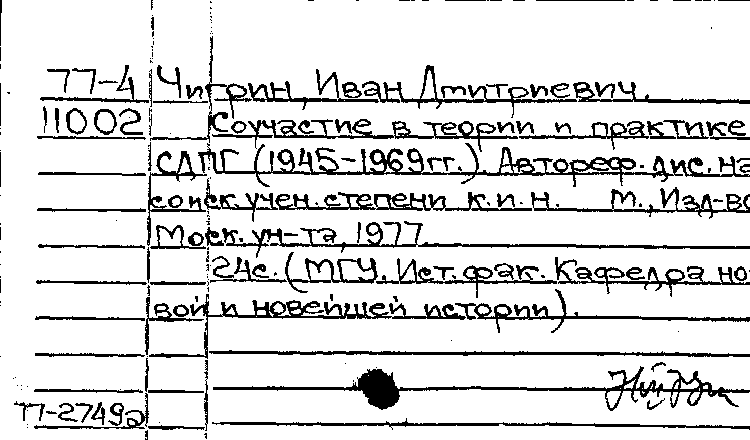 77-4 Чигрин, Иван Дмитриевич.
11002 Соучастие в теории и практике
СДПГ (1945-1969гг.). Автореф. дис. на
соиск. учен. степени к.и.н. М., Изд-во
Моск. ун-та, 1977.
24с. (МГУ. Ист. фак. Кафедра но-
вой и новейшей истории).
77-2749а